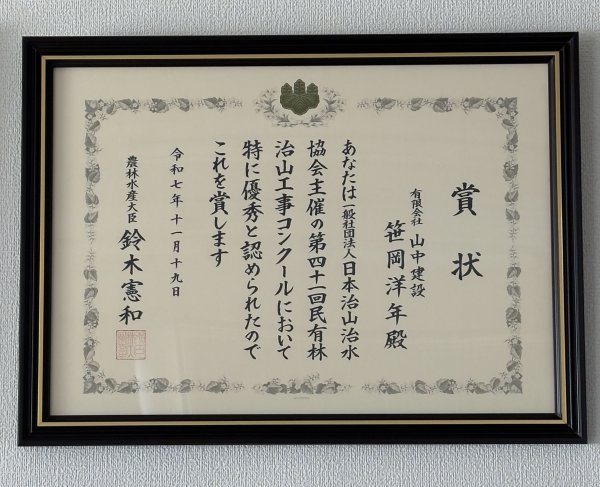 賞状
有限会社 山中建設
笹岡洋年殿
あなたは一般社団法人日本治山治水
協会主催の第四十一回民有林
治山工事コンクールにおいて
特に優秀と認められたので
これを賞します
令和七年十一月十九日
農林水産大臣 鈴木憲和